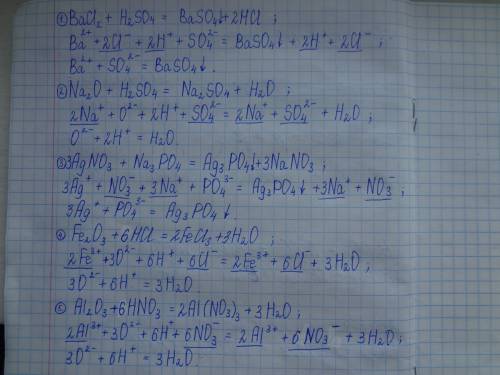 ① BaCl₂ + H₂SO₄ = BaSO₄↓+2HCl ;
Ba²⁺+2Cl⁻ +2H⁺+SO₄²⁻ = BaSO₄↓ +2H⁺+2Cl⁻ ;
Ba²⁺+SO₄²⁻ = BaSO₄↓ .
② Na₂O + H₂SO₄ = Na₂SO₄ + H₂O ;
2Na⁺ + O²⁻ + 2H⁺ + SO₄²⁻ = 2Na⁺ + SO₄²⁻ + H₂O ;
O²⁻ + 2H⁺ = H₂O .
③ 3AgNO₃ + Na₃PO₄ = Ag₃PO₄↓+3NaNO₃ ;
3Ag⁺ + NO₃⁻ + 3Na⁺ + PO₄³⁻ = Ag₃PO₄↓ +3Na⁺ + NO₃⁻ ;
3Ag⁺ + PO₄³⁻ = Ag₃PO₄↓ .
④ Fe₂O₃ +6HCl =2FeCl₃+3H₂O ;
2Fe³⁺+3O²⁻+6H⁺+6Cl⁻ = 2Fe³⁺+6Cl⁻ + 3H₂O ;
3O²⁻+6H⁺ = 3H₂O .
⑤ Al₂O₃+6HNO₃ =2Al(NO₃)₃ +3H₂O ;
2Al³⁺+3O²⁻+6H⁺+6NO₃⁻ = 2Al³⁺ +6NO₃⁻ +3H₂O ;
3O²⁻+6H⁺ = 3H₂O .